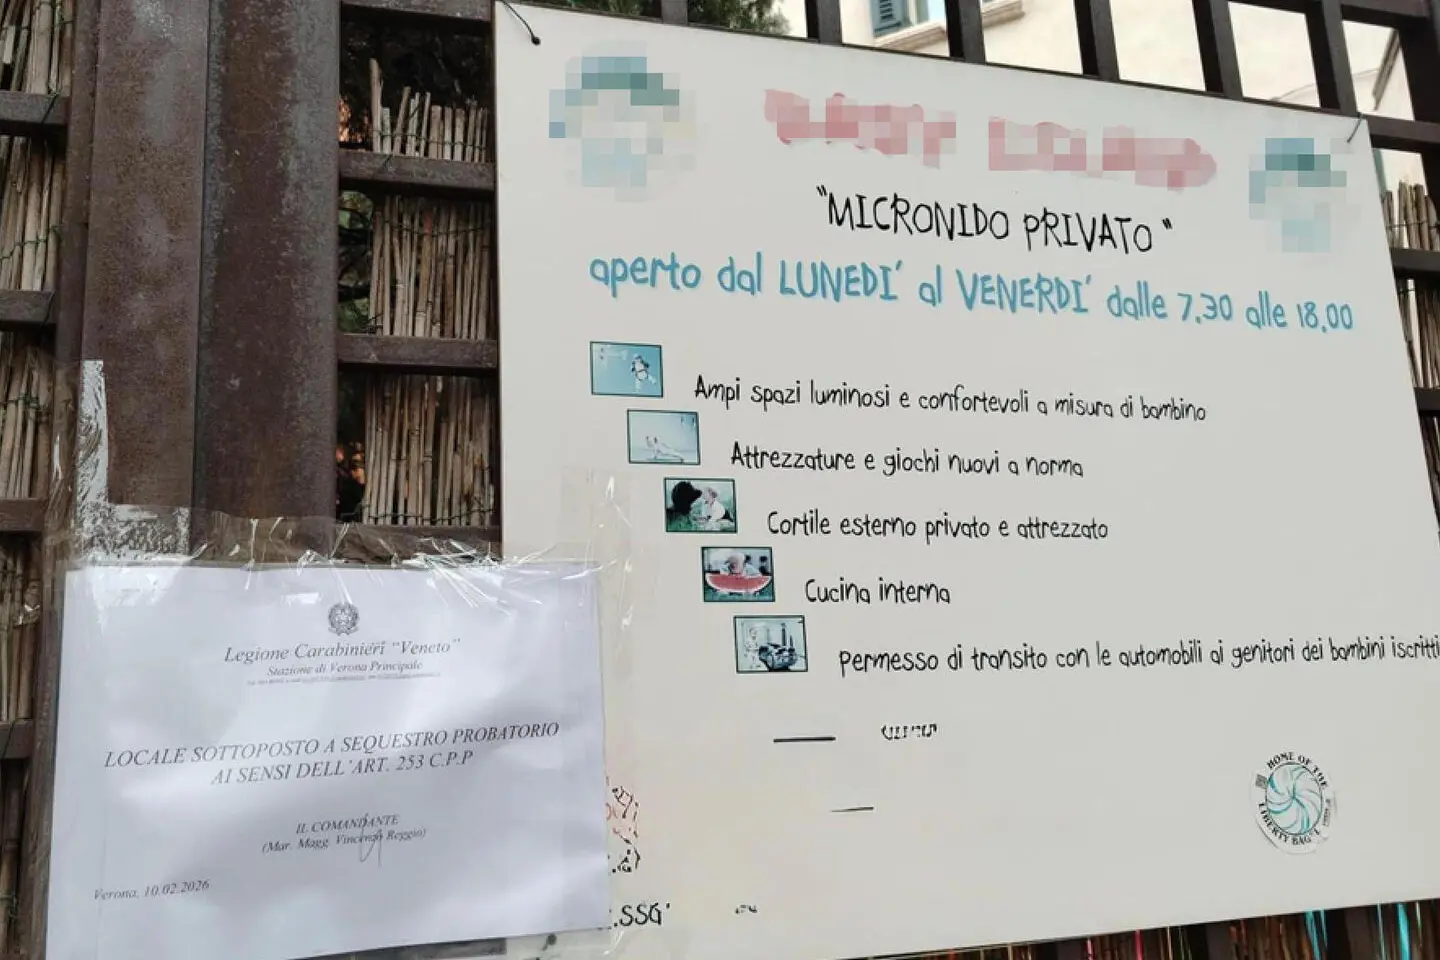 "MICRONIDO PRIVATO"
aperto dal LUNEDI' al VENERDI' dalle 7.30 alle 18.00
Ampi spazi luminosi e confortevoli a misura di bambino
Attrezzature e giochi nuovi a norma
Cortile esterno privato e attrezzato
Cucina interna
Permesso di transito con le automobili ai genitori dei bambini iscritti
HOME OF THE
LIBERTY BAG
Legione Carabinieri "Veneto"
Stazione di Verona Principale
LOCALE SOTTOPOSTO A SEQUESTRO PROBATORIO
AI SENSI DELL'ART. 253 C.P.P
IL COMANDANTE
(Mar. Magg. Vincenzo Reggio)
Verona, 10.02.2026